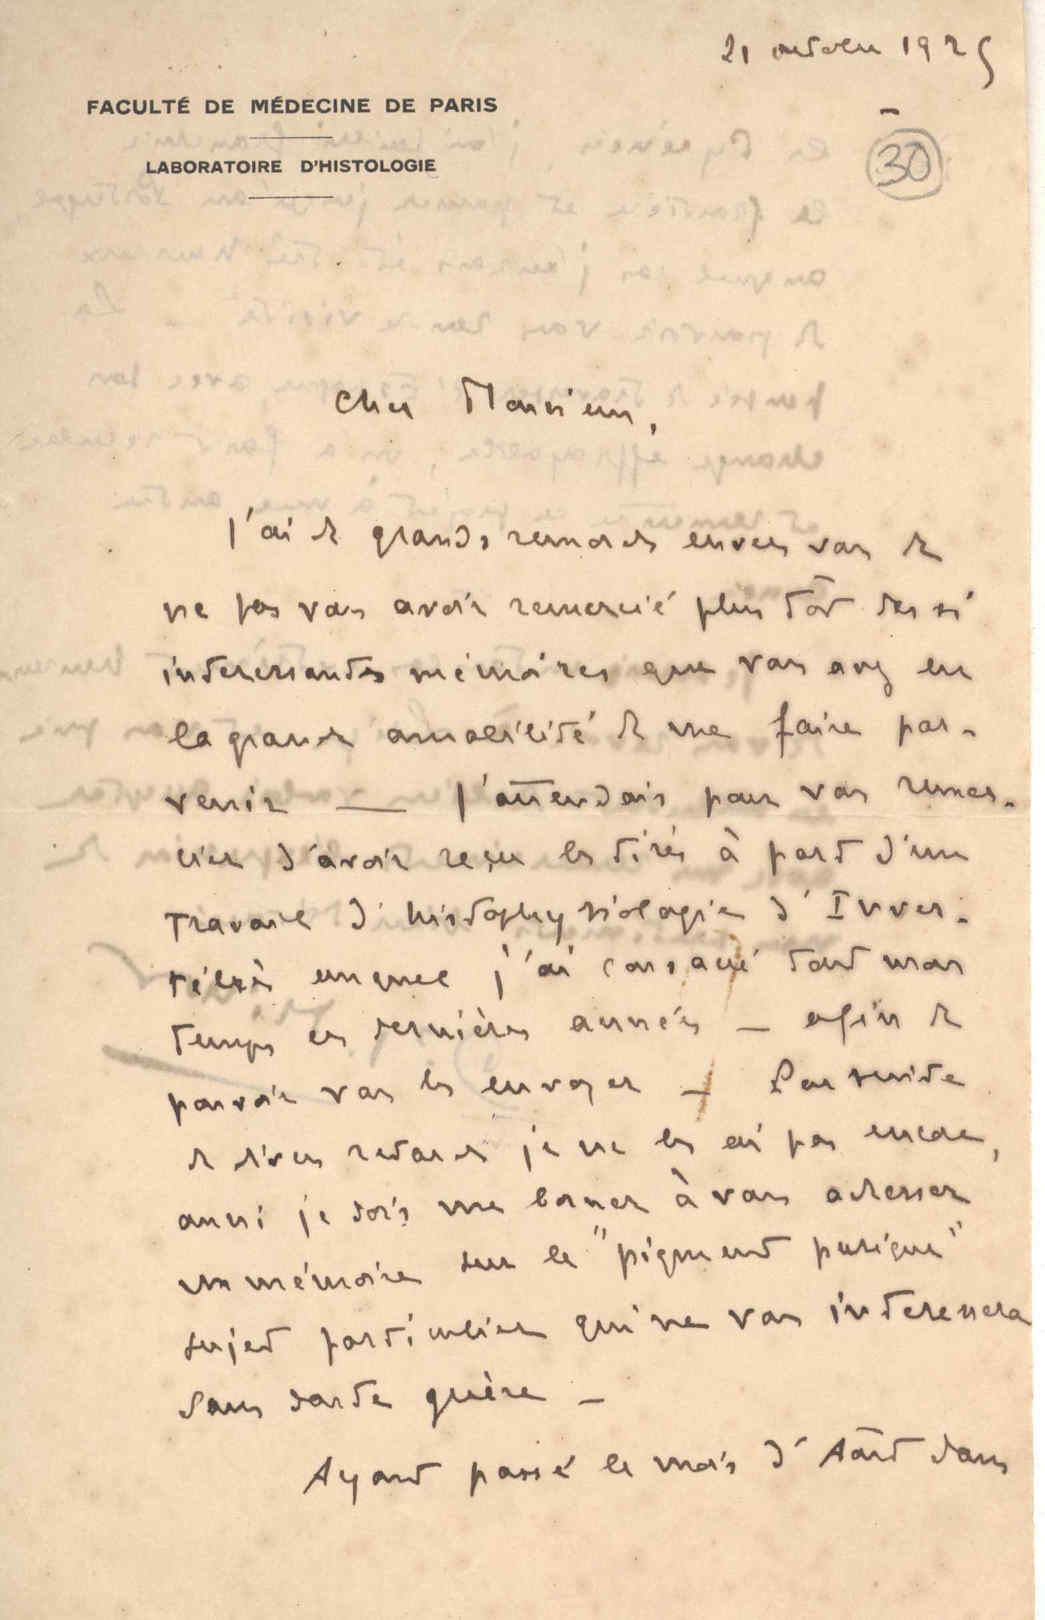 21 octobre 1925
FACULTÉ DE MÉDECINE DE PARIS
LABORATOIRE D'HISTOLOGIE
30
Cher Monsieur,
J'ai de grands remords envers vous de
ne pas vous avoir remercié plus tôt des si
interessants mémoires que vous avez eu
la grande amabilité de me faire par-
venir — J'attendais pour vous remer-
cier d'avoir reçu les tirés à part d'un
travail d'histophysiologie d'Inver-
tébrés auquel j'ai consacré tout mon
temps ces dernières années — afin de
pouvoir vous les envoyer — Par suite
de divers retards je ne les ai pas encore,
aussi je dois me borner à vous adresser
un mémoire sur le "pigment purique"
sujet particulier qui ne vous interessera
sans doute guère —
Ayant passé le mois d'Août dans